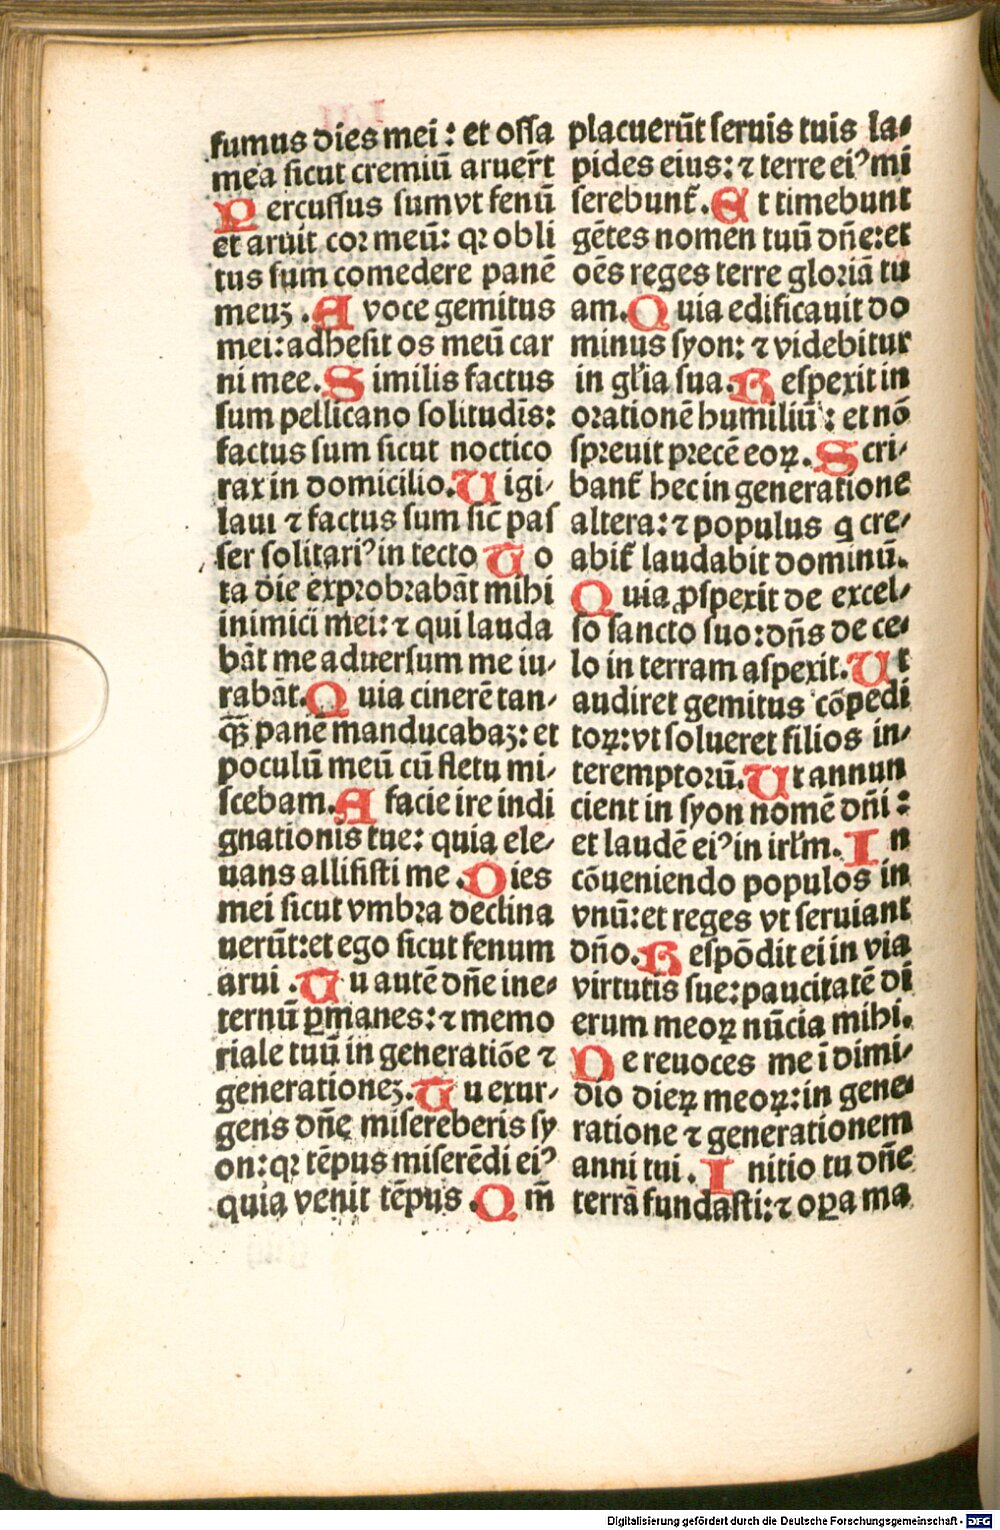 fumus dies mei : et ossa
mea sicut cremiū aruer̄t
Percussus sum vt fenū
et aruit cor meū: qꝛ obli
tus sum comedere panē
meuꝫ . A voce gemitus
mei: adhesit os meū car
ni mee. Similis factus
sum pellicano solitudīs:
factus sum sicut noctico
rax in domicilio. Uigi⸗
laui ⁊ factus sum sic̄ pas
ser solitariꝰ in tecto To
ta die exprobrabāt mihi
inimici mei: ⁊ qui lauda
bāt me aduersum me iu⸗
rabāt. Quia cinerē tan⸗
qꝫ̄ panē manducabaꝫ: et
poculū meū cū fletu mi⸗
scebam. A facie ire indi
gnationis tue: quia ele⸗
uans allisisti me . Dies
mei sicut vmbra declina
uerūt: et ego sicut fenum
arui . Tu autē dn̄e ine⸗
ternū ꝑmanes: ⁊ memo
riale tuū in generatiōe ⁊
generationeꝫ. Tu exur⸗
gens dn̄e misereberis sy
on: qꝛ tēpus miserēdi eiꝰ
quia venit tēpus . Qm̄
placuerūt seruis tuis la⸗
pides eius: ⁊ terre eiꝰ mi
serebunt᷑. Et timebunt
gētes nomen tuū dn̄e: et
oēs reges terre gloriā tu
am. Quia edificauit do
minus syon: ⁊ videbitur
in gl̄ia sua. Respexit in
orationē humiliū : et nō
spreuit precē eoꝝ. Scri⸗
bant᷑ hec in generatione
altera: ⁊ populus q cre⸗
abit᷑ laudabit dominū.
Quia ꝓspexit de excel⸗
so sancto suo: dn̄s de ce⸗
lo in terram aspexit. Ut
audiret gemitus cōpedi
toꝝ: vt solueret filios in⸗
teremptorū. Ut annun
cient in syon nomē dn̄i :
et laudē eiꝰ in irl̄m. In
cōueniendo populos in
vnū: et reges vt seruiant
dn̄o. Respōdit ei in via
virtutis sue: paucitatē di
erum meoꝝ nūcia mihi.
Ne reuoces me ī dimi⸗
dio dieꝝ meoꝝ: in gene⸗
ratione ⁊ generationem
anni tui . Initio tu dn̄e
terrā fundasti: ⁊ oꝑa ma
Digitalisierung gefördert durch die Deutsche Forschungsgemeinschaft - DFG